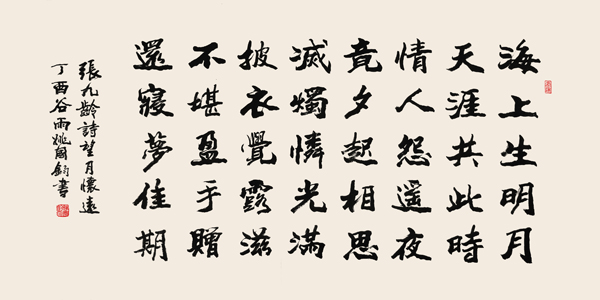 海上生明月
天涯共此時
情人怨遥夜
竟夕起相思
滅燭憐光滿
披衣覺露滋
不堪盈手贈
還寢夢佳期
張九齡詩望月懷遠
丁酉谷雨姚國書